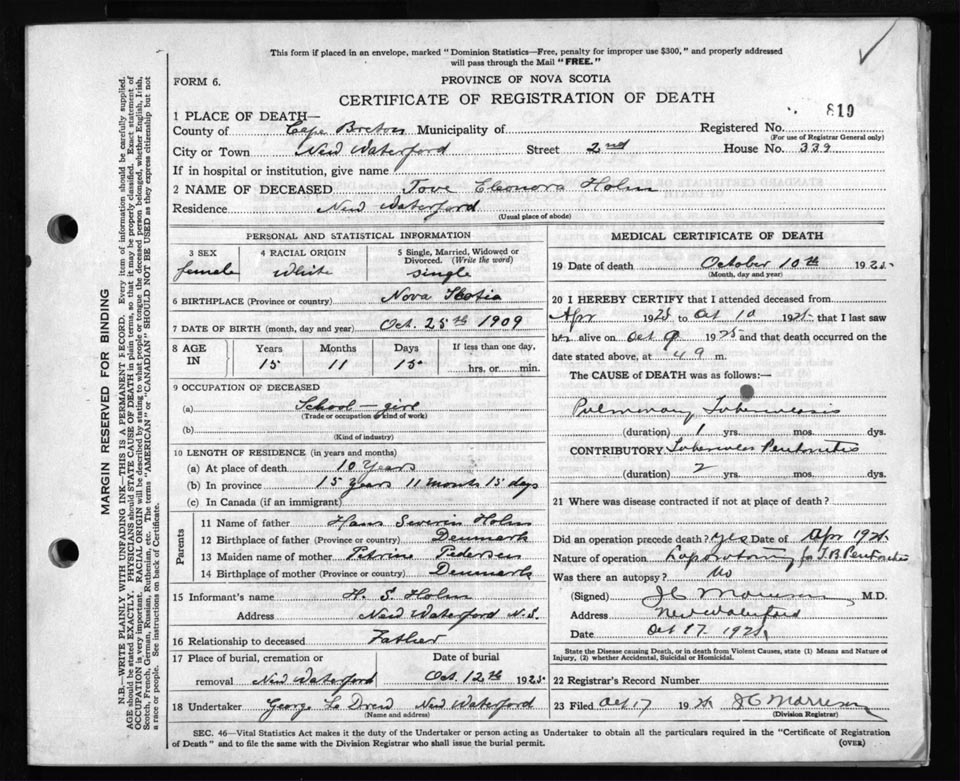 This form if placed in an envelope, marked "Dominion Statistics—Free, penalty for improper use $300," and properly addressed
will pass through the Mail "FREE."
FORM 6.
PROVINCE OF NOVA SCOTIA
CERTIFICATE OF REGISTRATION OF DEATH
819
1 PLACE OF DEATH—
County of Cape Breton Municipality of Registered No.
(For use of Registrar General only)
City or Town New Waterford Street 2nd House No. 339
If in hospital or institution, give name
2 NAME OF DECEASED Tove Eleonora Holm
Residence New Waterford
(Usual place of abode)
PERSONAL AND STATISTICAL INFORMATION
3 SEX 4 RACIAL ORIGIN 5 Single, Married, Widowed or
Divorced. (Write the word)
female White single
6 BIRTHPLACE (Province or country) Nova Scotia
7 DATE OF BIRTH (month, day and year) Oct. 25th 1909
8 AGE IN Years Months Days If less than one day,
15 11 15 hrs. or min.
9 OCCUPATION OF DECEASED
(a) School-girl
(Trade or occupation or kind of work)
(b)
(Kind of industry)
10 LENGTH OF RESIDENCE (in years and months)
(a) At place of death 10 Years
(b) In province 15 years 11 months 15 days
(c) In Canada (if an immigrant)
Parents
11 Name of father Hans Severin Holm
12 Birthplace of father (Province or country) Denmark
13 Maiden name of mother Petrine Pedersen
14 Birthplace of mother (Province or country) Denmark
15 Informant's name H. S. Holm
Address New Waterford N.S.
16 Relationship to deceased Father
17 Place of burial, cremation or Date of burial
removal New Waterford Oct. 12th 1925
18 Undertaker George New Waterford
(Name and address)
MEDICAL CERTIFICATE OF DEATH
19 Date of death October 10th 1925
(Month, day and year)
20 I HEREBY CERTIFY that I attended deceased from
Apr 1925 to Oct 10 1925 that I last saw
her alive on Oct 9 1925 and that death occurred on the
date stated above, at 4 9 m.
The CAUSE of DEATH was as follows:—
Pulmonary Tuberculosis
(duration) 1 yrs. mos. dys.
CONTRIBUTORY Tubercular Peritonitis
(duration) 2 yrs. mos. dys.
21 Where was disease contracted if not at place of death?
Did an operation precede death? Yes Date of Apr 1925
Nature of operation Laparotomy for T.B. Peritonitis
Was there an autopsy? No
(Signed) J C Morrison M.D.
Address New Waterford
Date Oct 17 1925
State the Disease causing Death, or in death from Violent Causes, state (1) Means and Nature of
Injury, (2) whether Accidental, Suicidal or Homicidal.
22 Registrar's Record Number
23 Filed Oct 17 1925 J C Morrison
(Division Registrar)
SEC. 46—Vital Statistics Act makes it the duty of the Undertaker or person acting as Undertaker to obtain all the particulars required in the "Certificate of Registration
of Death" and to file the same with the Division Registrar who shall issue the burial permit.
(OVER)
MARGIN RESERVED FOR BINDING
N.B.—WRITE PLAINLY WITH UNFADING INK—THIS IS A PERMANENT RECORD. Every item of information should be carefully supplied.
AGE should be stated EXACTLY. PHYSICIANS should STATE CAUSE OF DEATH in plain terms, so that it may be properly classified. Exact statement of
OCCUPATION is very important. RACIAL ORIGIN will be described by stating to what people or tongue the deceased person belonged, whether English, Irish,
Scotch, French, German, Russian, Ruthenian, etc. The terms "AMERICAN" or "CANADIAN" SHOULD NOT BE USED as they express citizenship but not
a race or people. See instructions on back of Certificate.